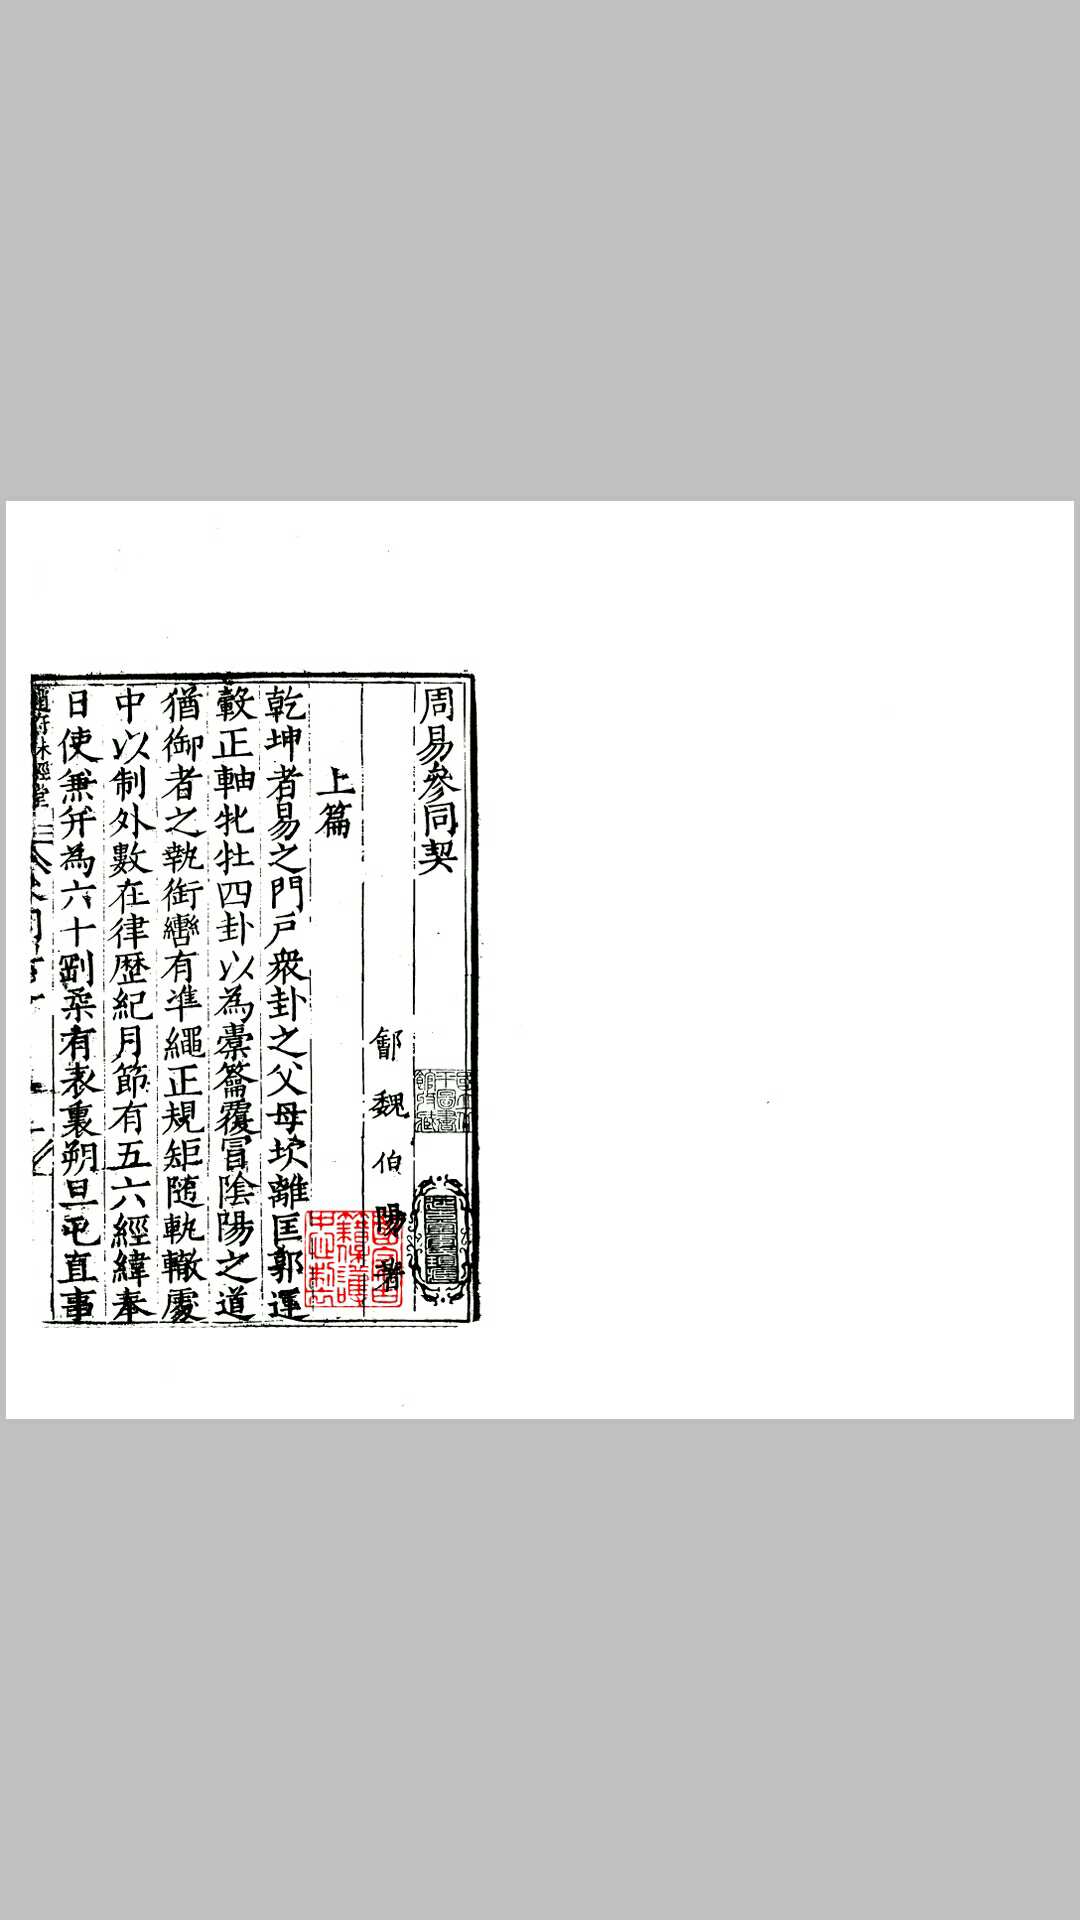 周易參同契
鄶魏伯陽著
上篇
乾坤者易之門戶衆卦之父母坎離匡郭運
轂正軸牝牡四卦以為橐籥覆冒陰陽之道
猶御者之執銜轡有凖繩正規矩随軌轍處
中以制外數在律歴紀月節有五六經緯奉
日使兼并為六十剛柔有表裏朔旦屯直事